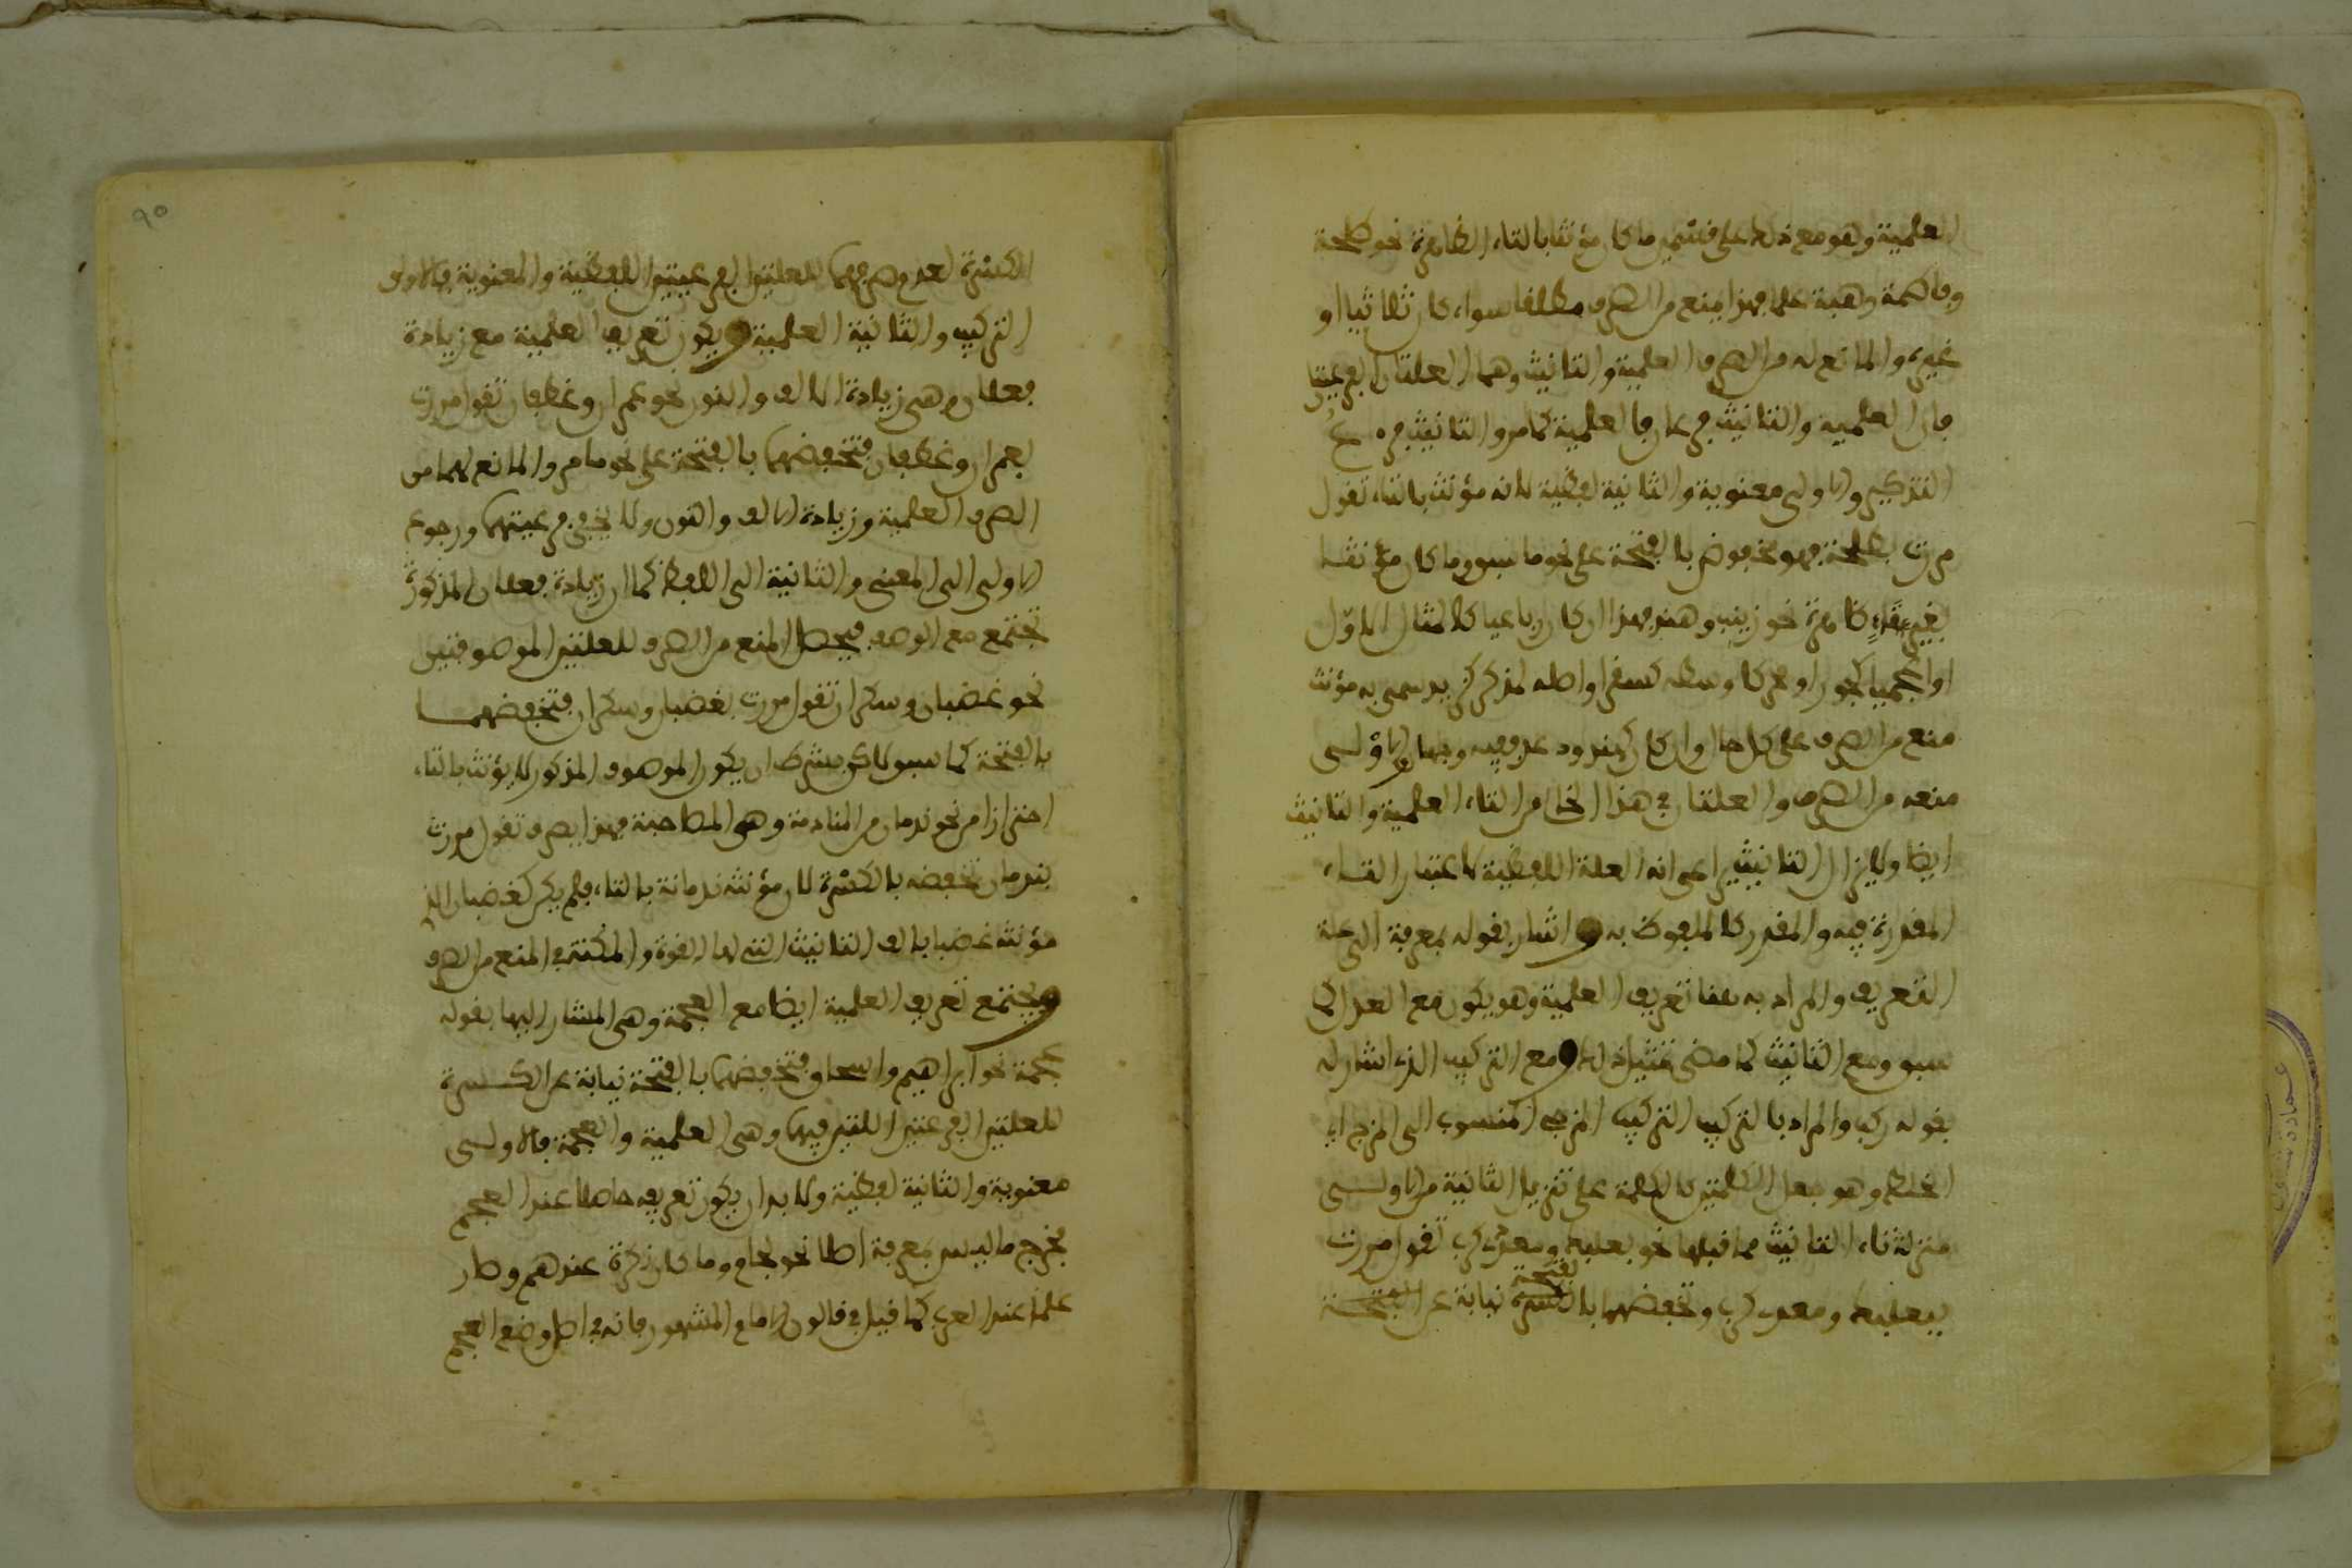 العلمية وهو مع ذلك على قسمين ما كان مؤنثا بالتاء الظاهرة نحو طلحة
وفاطمة وهبة علما فهذا يمنع من الصرف مطلقا سواء كان ثلاثيا او
غيره والمانع له من الصرف العلمية والتانيث وهما العلتان الفرعيتان
فان العلمية والتانيث فرعان فالعلمية كما مر والتانيث فرع
التذكير والاولى معنوية والثانية لفظية لانه مؤنث بالتاء تقول
مررت بطلحة فهو مخفوض بالفتحة على نحو ما سبق وما كان مؤنثا
بغير تاء ظاهرة نحو زينب وهند فهذا ان كان رباعيا كالمثال الاول
او اعجميا كجور او محركا وسطه كسقر او اصله لمذكر كزيد سمي به مؤنث
منع من الصرف على كل حال وان كان كهند ودعد ففيه وجهان والاولى
منعه من الصرف والعلتان في هذا الخالي من التاء العلمية والتانيث
ايضا ولا يزال التانيث يراعى انه العلة اللفظية لاعتبار التاء
المقدرة فيه والمقدر كالملفوظ به واشار بقوله بمعرفة الى علة
التعريف والمراد به هنا تعريف العلمية وهو يكون مع العدل كما
سبق ومع التانيث كما مضى تمثيل ذلك ومع التركيب الذي اشار له
بقوله ركب والمراد بالتركيب التركيب المزجي المنسوب الى المزج اي
الخلط وهو جعل الكلمتين كالكلمة على تنزيل الثانية من الاولى
منزلة تاء التانيث مما قبلها نحو بعلبك ومعدي كرب تقول مررت
ببعلبك ومعدي كرب وتخفضهما بالفتحة نيابة عن
الكسرة لعدم صرفهما للعلتين الفرعيتين اللفظية والمعنوية فالاولى
التركيب والثانية العلمية ويكون تعريف العلمية مع زيادة
فعلان وهي زيادة الالف والنون نحو عمران وغطفان تقول مررت
بعمران وغطفان فتخفضهما بالفتحة على نحو ما مر والمانع لهما من
الصرف العلمية وزيادة الالف والنون ولا يخفى فرعيتهما ورجوع
الاولى الى المعنى والثانية الى اللفظ كما ان زيادة فعلان المذكورة
تجتمع مع الوصف فيحصل المنع من الصرف للعلتين الموصوفتين
نحو غضبان وسكران تقول مررت بغضبان وسكران فتخفضهما
بالفتحة كما سبق لاكن بشرط ان يكون الموصوف المذكور لا يؤنث بالتاء
احترازا من نحو ندمان من المنادمة وهي المصاحبة فهذا يصرف تقول مررت
بندمان تخفضه بالكسرة لان مؤنثه ندمانة بالتاء فلم يكن كغضبان الذي
مؤنثه غضبا بالف التانيث التي لها القوة والمكنة في المنع من الصرف
ويجتمع تعريف العلمية ايضا مع العجمة وهي المشار اليها بقوله
عجمة نحو ابراهيم واسحاق فتخفضهما بالفتحة نيابة عن الكسرة
للعلتين الفرعيتين اللتين فيهما وهي العلمية والعجمة فالاولى
معنوية والثانية لفظية ولا بد ان يكون تعريفه حاصلا عند العجم
فخرج ما ليس بمعرفة اصلا نحو لجام وما كان نكرة عندهم وصار
علما عند العرب كما قيل في قالون الامام المشهور فانه في اصل وضع العجم
٩٠